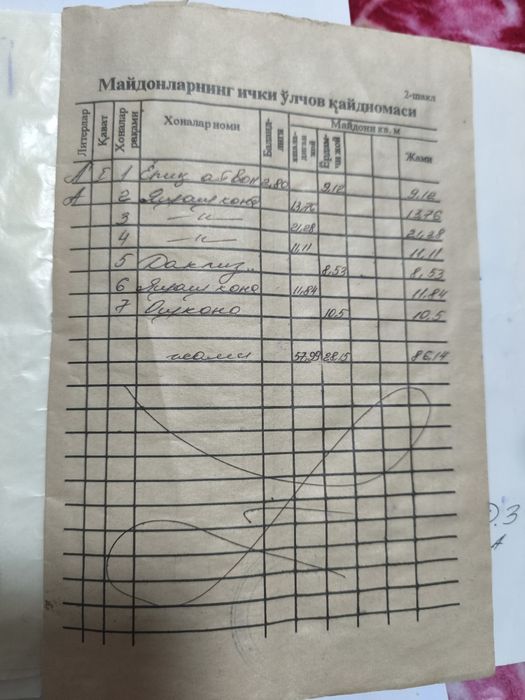 2-шакл
Майдонларнинг ички ўлчов қайдномаси
Литерлар Қават Хоналар рақами Хоналар номи Баланд-лиги Майдони кв. м
яшаладиган жой Ёрдамчи жой Жами
А Е 1 Ёпиқ айвон 2,80 9,12 9,12
А 2 Яшаш хона 13,76 13,76
3 —〃— 21,28 21,28
4 —〃— 11,11 11,11
5 Дахлиз 8,53 8,53
6 Яшаш хона 11,84 11,84
7 Ошхона 10,5 10,5
жами 57,99 28,15 86,14